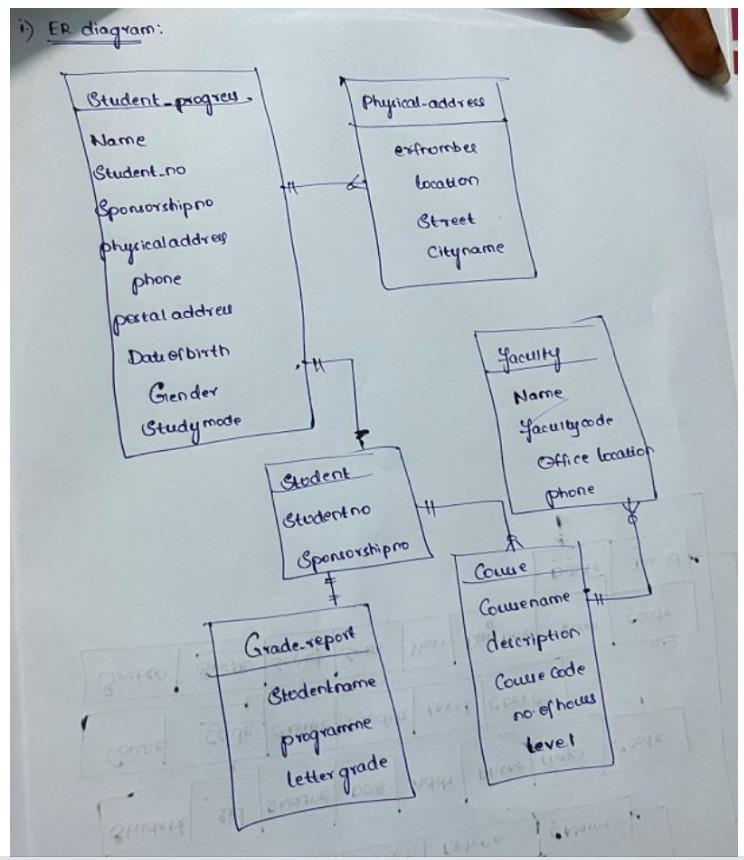 i) ER diagram:
Student-progress
Name
Student-no
Sponsorshipno
physicaladdress
phone
postal address
Date of birth
Gender
Studymode
Physical-address
location
Street
Cityname
faculty
Name
facultycode
Office location
phone
Student
Studentno
Sponsorshipno
Course
Cousename
description
Course Code
no.of hours
level
Grade-report
Studentname
programme
letter grade